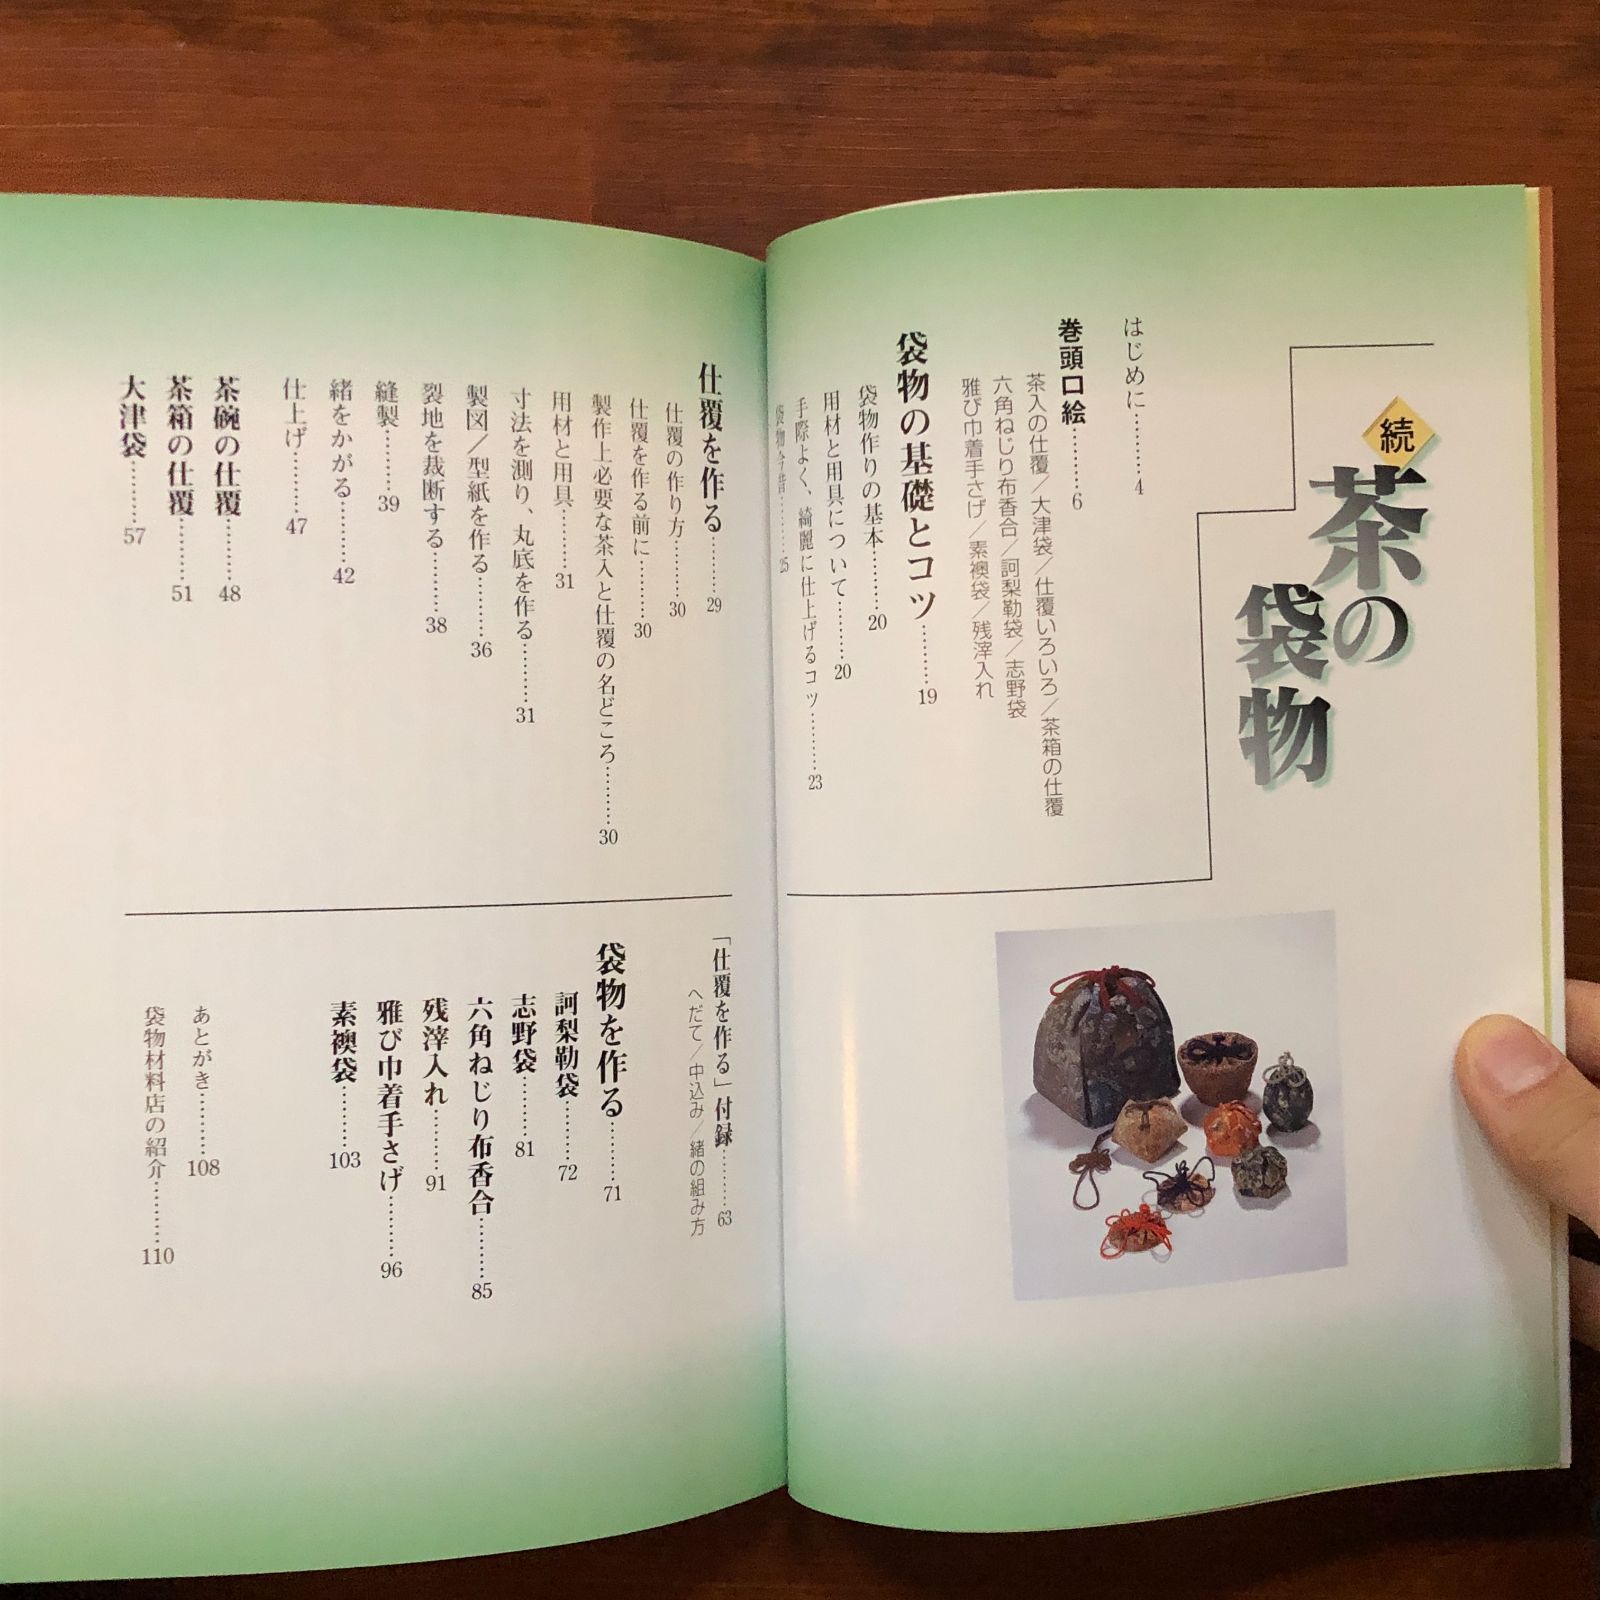 続
茶の
袋物
はじめに………4
巻頭口絵………6
茶入の仕覆／大津袋／仕覆いろいろ／茶箱の仕覆
六角ねじり布香合／訶梨勒袋／志野袋
雅び巾着手さげ／素襖袋／残滓入れ
袋物の基礎とコツ………19
袋物作りの基本………20
用材と用具について………20
手際よく、綺麗に仕上げるコツ………23
袋物今昔………25
仕覆を作る………29
仕覆の作り方………30
仕覆を作る前に………30
製作上必要な茶入と仕覆の名どころ………30
用材と用具………31
寸法を測り、丸底を作る………31
製図／型紙を作る………36
裂地を裁断する………38
縫製………39
緒をかがる………42
仕上げ………47
茶碗の仕覆………48
茶箱の仕覆………51
大津袋………57
「仕覆を作る」付録………63
へだて／中込み／緒の組み方
袋物を作る………71
訶梨勒袋………72
志野袋………81
六角ねじり布香合………85
残滓入れ………91
雅び巾着手さげ………96
素襖袋………103
あとがき………108
袋物材料店の紹介………110